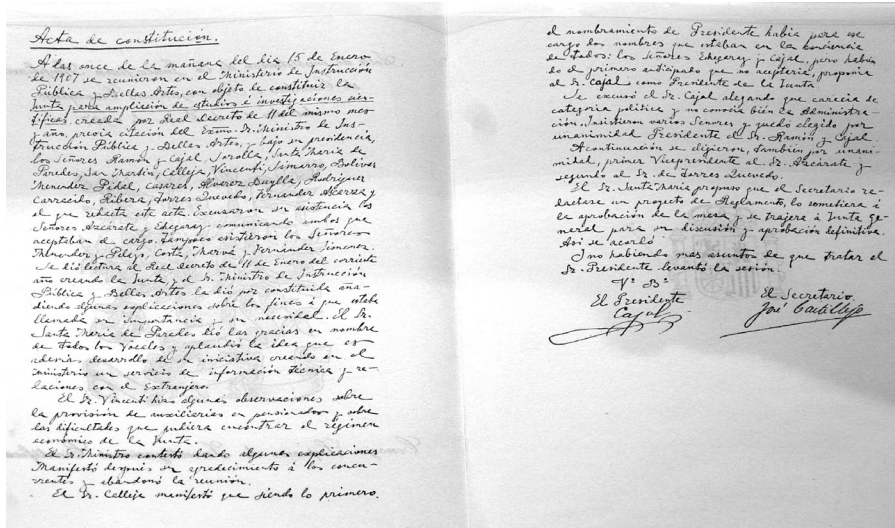 Acta de constitucion.
A las once de la mañana del dia 15 de Enero
de 1907 se reunieron en el Ministerio de Instrucción
Pública y Bellas Artes, con objeto de constituir la
Junta para ampliación de estudios é investigaciones cien-
tíficas, creada por Real decreto de 11 del mismo mes
y año, previa citación del Excmo. Sr. Ministro de Ins-
trucción Pública y Bellas Artes, y bajo su presidencia,
los Señores Ramón y Cajal, Sorolla, Santa Maria de
Paredes, San Martín, Calleja, Vincenti, Simarro, Bolívar
Menendez Pidal, Casares, Alvarez Buylla, Rodriguez
Carracido, Ribera, Torres Quevedo, Fernandez Alcerza y
el que redacta este acta. Excusaron su asistencia los
Señores Azcárate y Echegaray comunicando ambos que
aceptaban el cargo. Tampoco asistieron los Señores
Menendez y Pelayo, Costa, Marvá y Fernández Jimenez.
Se dió lectura al Real decreto de 11 de Enero del corriente
año creando la Junta y el Sr. Ministro de Instrucción
Pública y Bellas Artes la dió por constituida aña-
diendo algunas explicaciones sobre los fines á que estaba
llamada su importancia y su necesidad. El Sr.
Santa Maria de Paredes dió las gracias en nombre
de todos los Vocales y aplaudió la idea que es
además desarrollo de su iniciativa creando en el
Ministerio un servicio de información técnica y re-
laciones con el Extranjero.
El Sr. Vincenti hizo algunas observaciones sobre
la provisión de auxiliarias en pensionados y sobre
las dificultades que pudiera encontrar el régimen
económico de la Junta.
El Sr. Ministro contestó dando algunas explicaciones
Manifestó después su agradecimiento á los concu-
rrentes y abandonó la reunión.
El Sr. Calleja manifestó que siendo lo primero.
el nombramiento de Presidente habia para ese
cargo dos nombres que estaban en la conciencia
de todos: los Señores Echegaray y Cajal, pero habien-
do el primero anticipado que no aceptaria, proponia
al Sr. Cajal como Presidente de la Junta
Se excusó el Sr. Cajal alegando que carecia de
categoria politica y no conocia bien la Administra-
ción. Insistieron varios Señores y quedó elegido por
unanimidad Presidente el Sr. Ramón y Cajal.
A continuación se eligieron, también por unani-
midad, primer Vicepresidente al Sr. Azcárate y
segundo al Sr. de Torres Quevedo.
El Sr. Santa Maria propuso que el Secretario re-
dactase un proyecto de Reglamento, lo sometiera á
la aprobación de la mesa y se trajera á Junta ge-
neral para su discusión y aprobación definitiva.
Asi se acordó
Y no habiendo mas asuntos de que tratar el
Sr. Presidente levantó la sesión.
Vº Bº
El Presidente
Cajal
El Secretario
José Castillejo